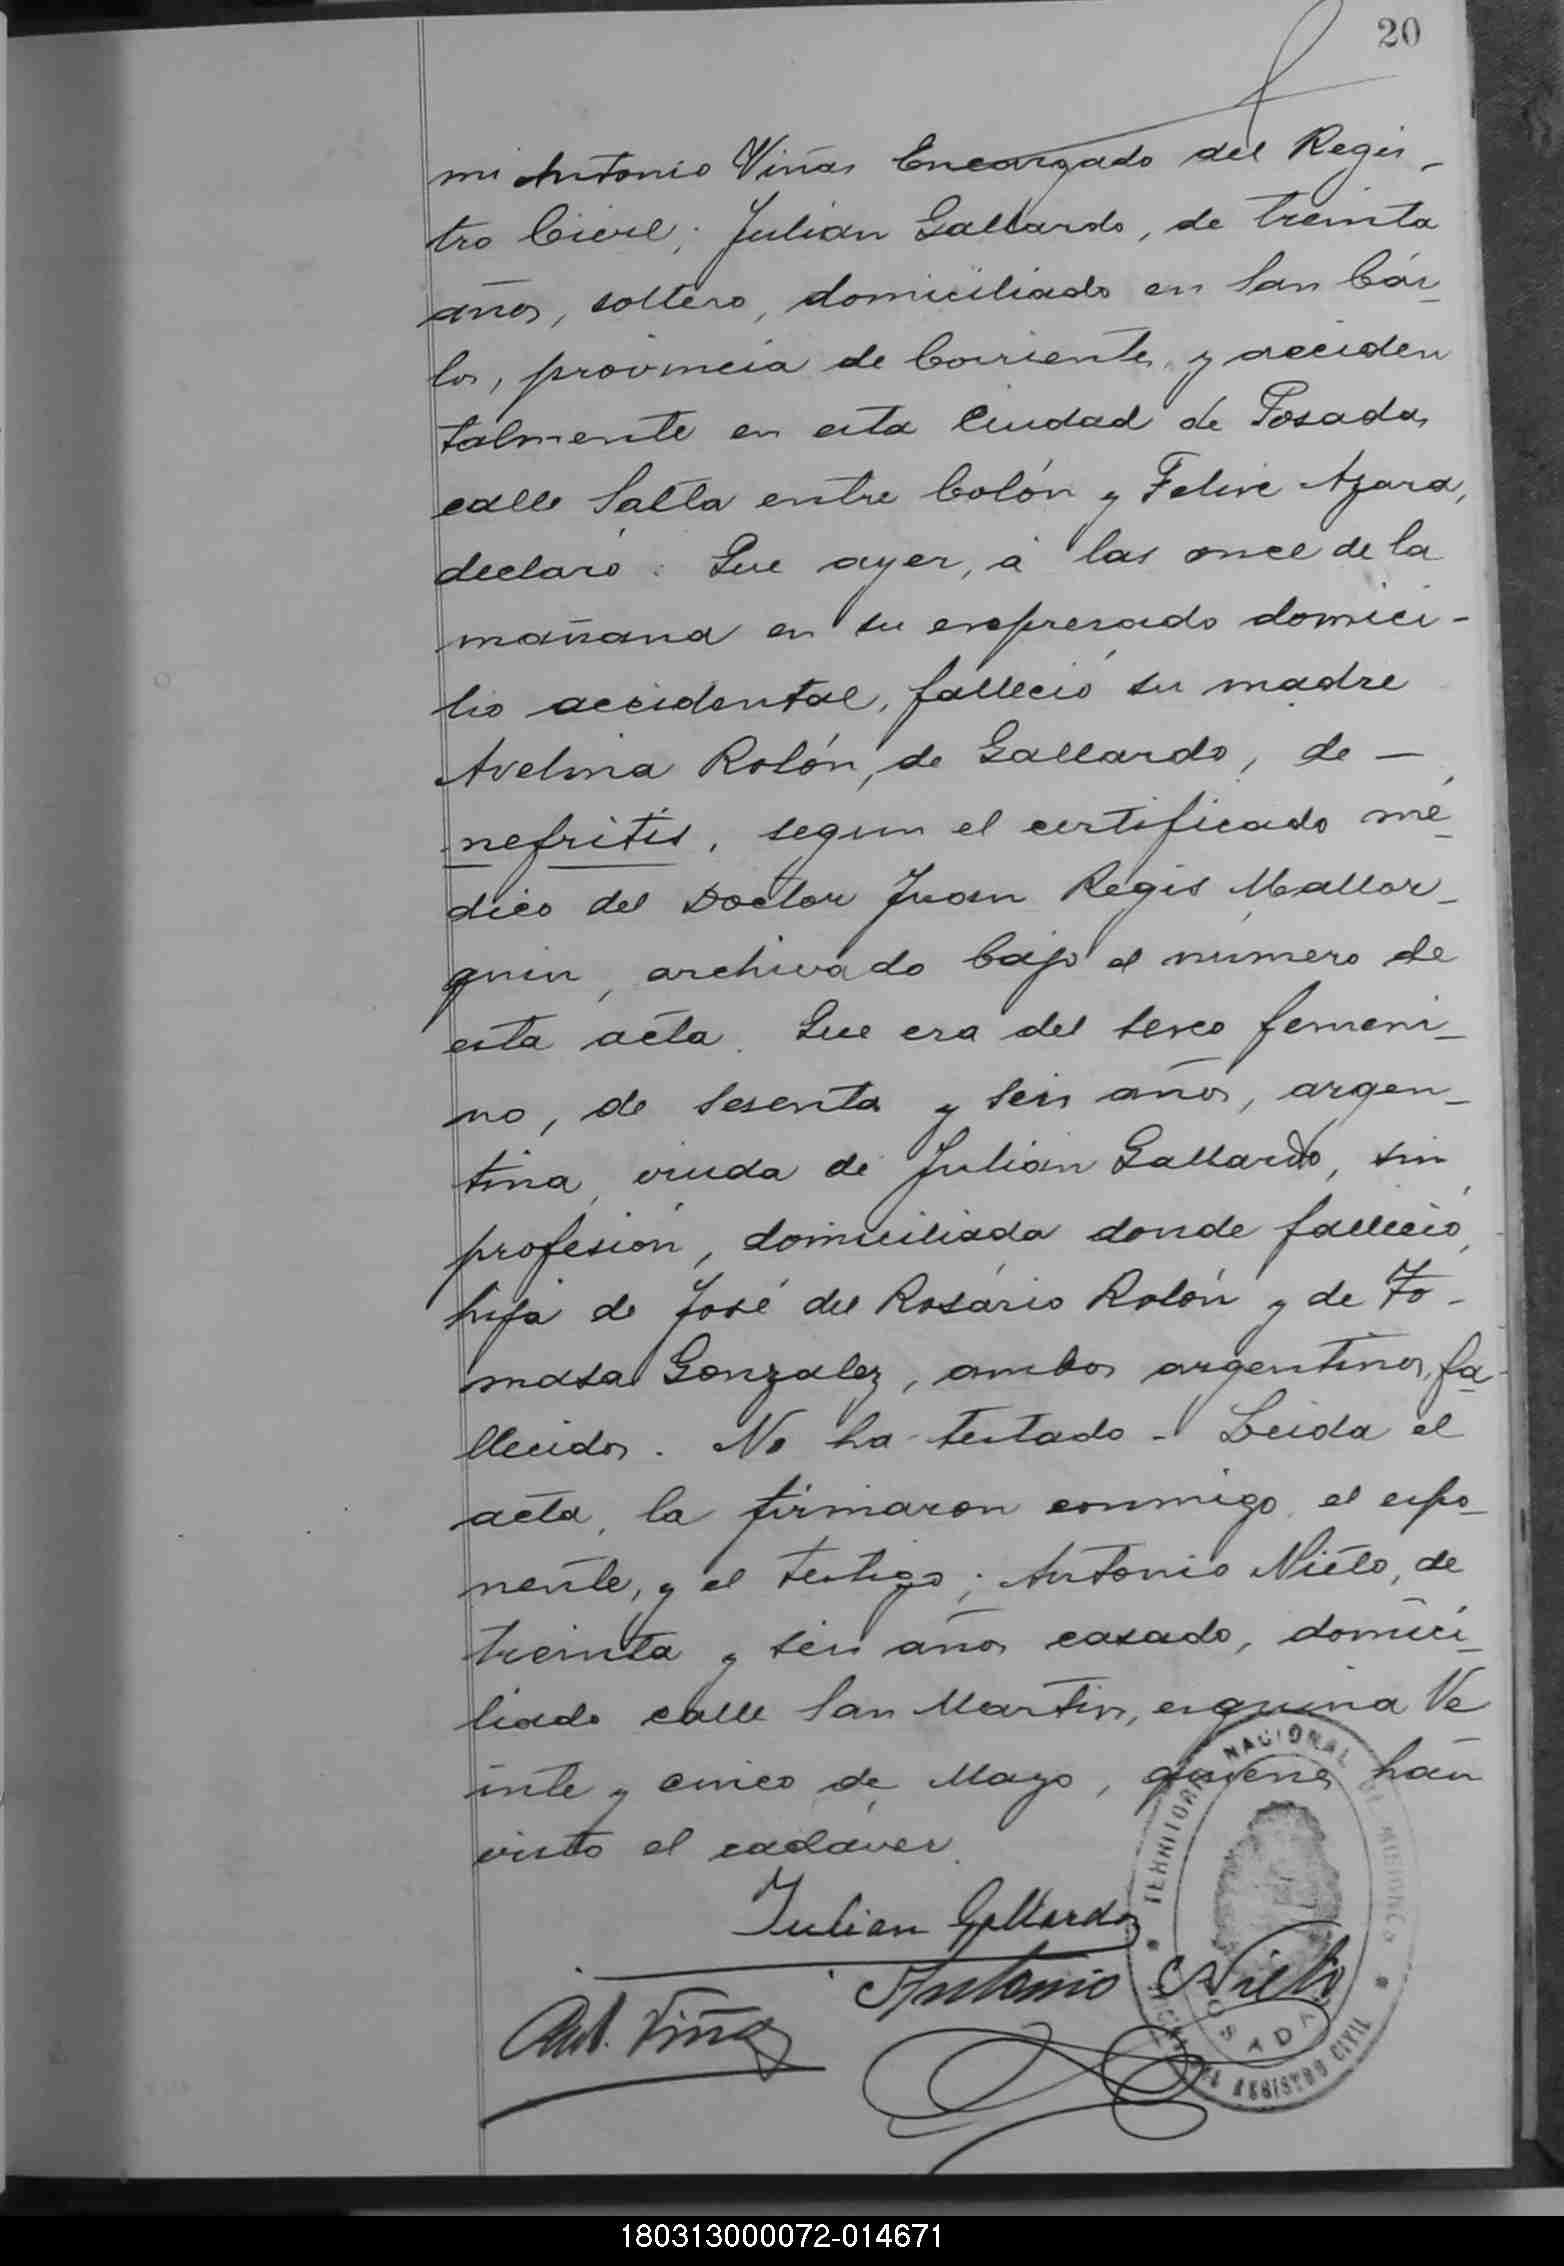 20
mi Antonio Viñas Encargado del Regis-
tro Civil; Julián Gallardo, de treinta
años, soltero, domiciliado en San Cár-
los, provincia de Corrientes y acciden
talmente en esta Ciudad de Posadas
calle Salta entre Colón y Felix Azara,
declaró: Que ayer, á las once de la
mañana en su expresado domici-
lio accidental, falleció su madre
Avelina Rolón, de Gallardo, de —
nefritis, segun el certificado mé-
dico del Doctor Juan Regis Mallor-
quin, archivado bajo el número de
esta acta. Que era del sexo femeni-
no, de sesenta y seis años, argen-
tina, viuda de Julián Gallardo, sin
profesión, domiciliada donde falleció,
hija de José del Rosário Rolón y de To-
masa Gonzalez, ambos argentinos, fa-
llecidos. No ha testado - Leida el
acta, la firmaron conmigo, el expo-
nente, y el testigo; Antonio Nieto, de
treinta y seis años casado, domici-
liado calle San Martin, esquina Ve
inte y cinco de Mayo, quienes han
visto el cadáver.
Julian Gallardo
Antonio Nieto
Ant. Viñas
TERRITORIO NACIONAL DE MISIONES
POSADAS
REGISTRO CIVIL
180313000072-014671